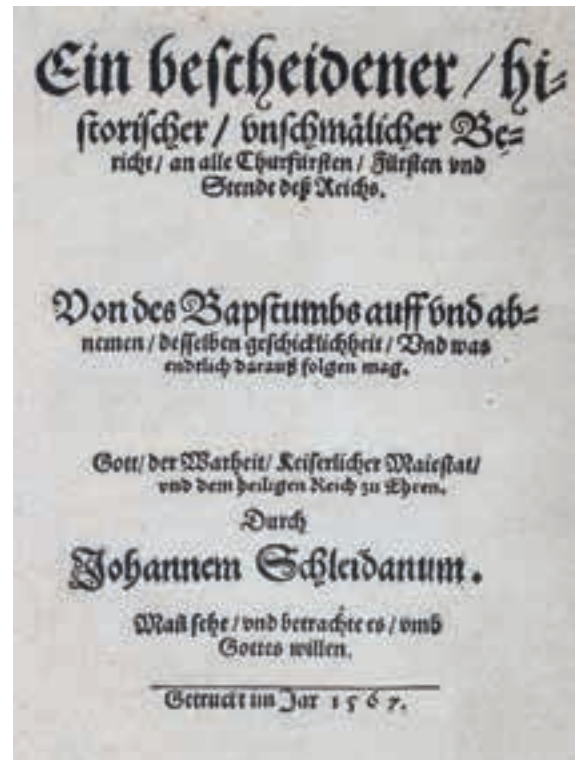 Ein bescheidener / hi⸗
storischer / vnschmälicher Be⸗
richt / an alle Churfürsten / Fürsten vnd
Stende deß Reichs.
Von des Bapstumbs auff vnd ab⸗
nemen / desselben geschicklichheit / Vnd was
endtlich darauß folgen mag.
Gott / der Warheit / Keiserlicher Maiestat /
vnd dem heiligen Reich zu Ehren.
Durch
Johannem Schleidanum.
Mañ sehe / vnd betrachte es / vmb
Gottes willen.
Getruckt im Jar 1567.